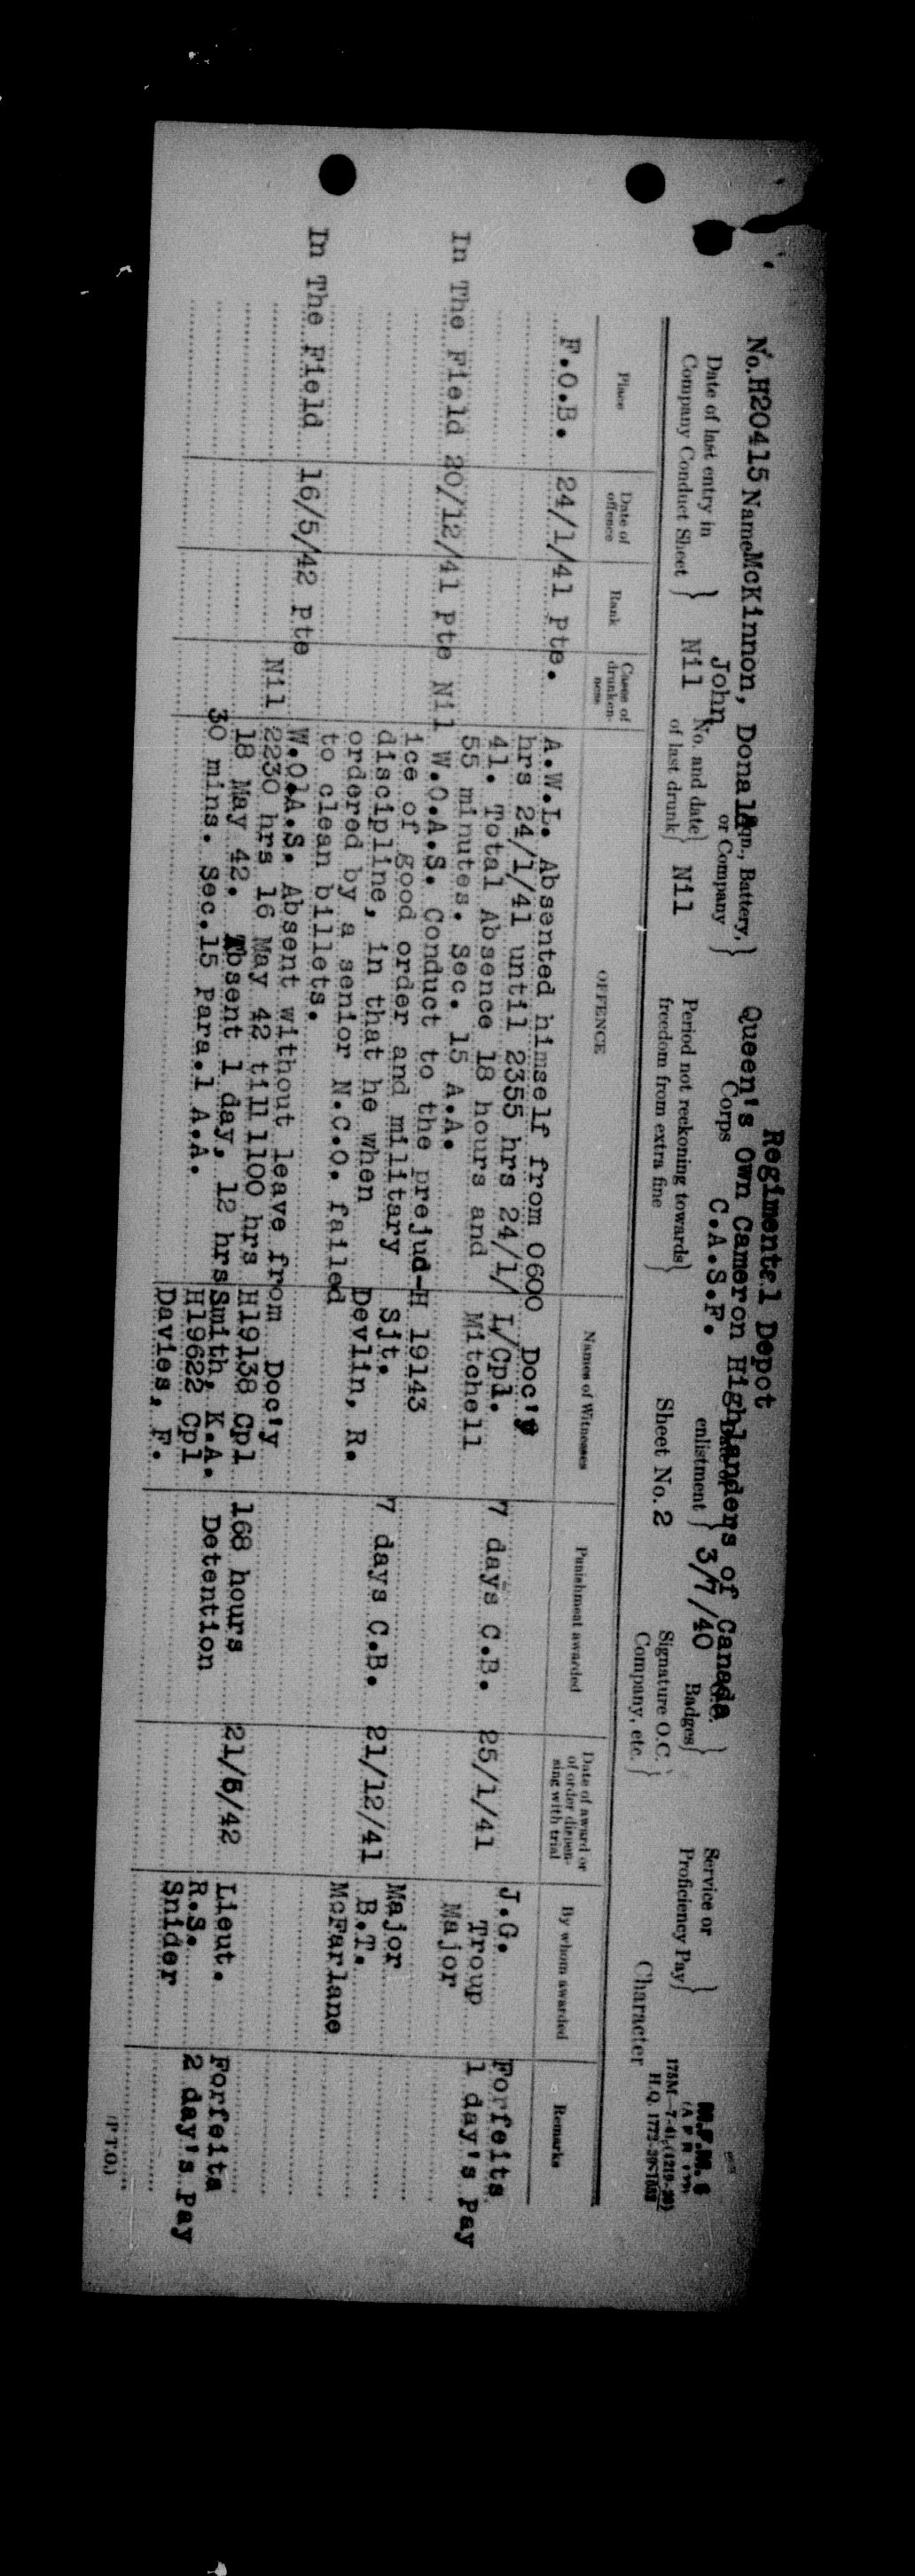 Regimental Depot
No. H20415 Name McKinnon, Donald John Sqn., Battery, or Company } Queen's Own Cameron Highlanders of Canada
Corps C.A.S.F.
enlistment } 3/7/40 Badges } Service or Proficiency Pay }
M.F.M. 6
175M—7-41 (1219-20)
H.Q. 1772-39-1563
Date of last entry in Company Conduct Sheet } Nil No. and date of last drunk } Nil Period not reckoning towards freedom from extra fine } Sheet No. 2 Signature O.C. Company, etc. } Character
Place Date of offence Rank Cases of drunkenness OFFENCE Names of Witnesses Punishment awarded Date of award or of order dispensing with trial By whom awarded Remarks
F.O.B. 24/1/41 Pte. A.W.L. Absented himself from 0600 Doc'y
hrs 24/1/41 until 2355 hrs 24/1/ L/Cpl. 7 days C.B. 25/1/41 J.G. Forfeits
41. Total Absence 18 hours and Mitchell Troup 1 day's Pay
55 minutes. Sec. 15 A.A. Major
In The Field 20/12/41 Pte Nil W.O.A.S. Conduct to the prejud-
ice of good order and military H 19143
discipline, in that he when Sjt. 7 days C.B. 21/12/41 Major
ordered by a senior N.C.O. failed Devlin, R. B.T.
to clean billets. McFarlane
In The Field 16/5/42 Pte Nil W.O.A.S. Absent without leave from Doc'y
2230 hrs 16 May 42 till 1100 hrs H19138 Cpl 168 hours 21/5/42 Lieut. Forfeits
18 May 42. Absent 1 day, 12 hrs Smith, K.A. Detention R.S. 2 day's Pay
30 mins. Sec.15 Para.1 A.A. H19622 Cpl Snider
Davies, F.
(P.T.O.)